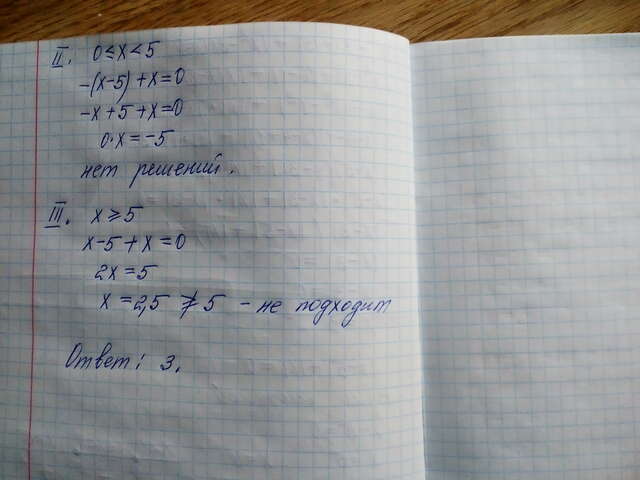 II. 0 ≤ x < 5
-(x-5)+x=0
-x+5+x=0
0·x=-5
нет решений.
III. x ≥ 5
x-5+x=0
2x=5
x=2,5 ≱ 5 - не подходит
Ответ: 3.